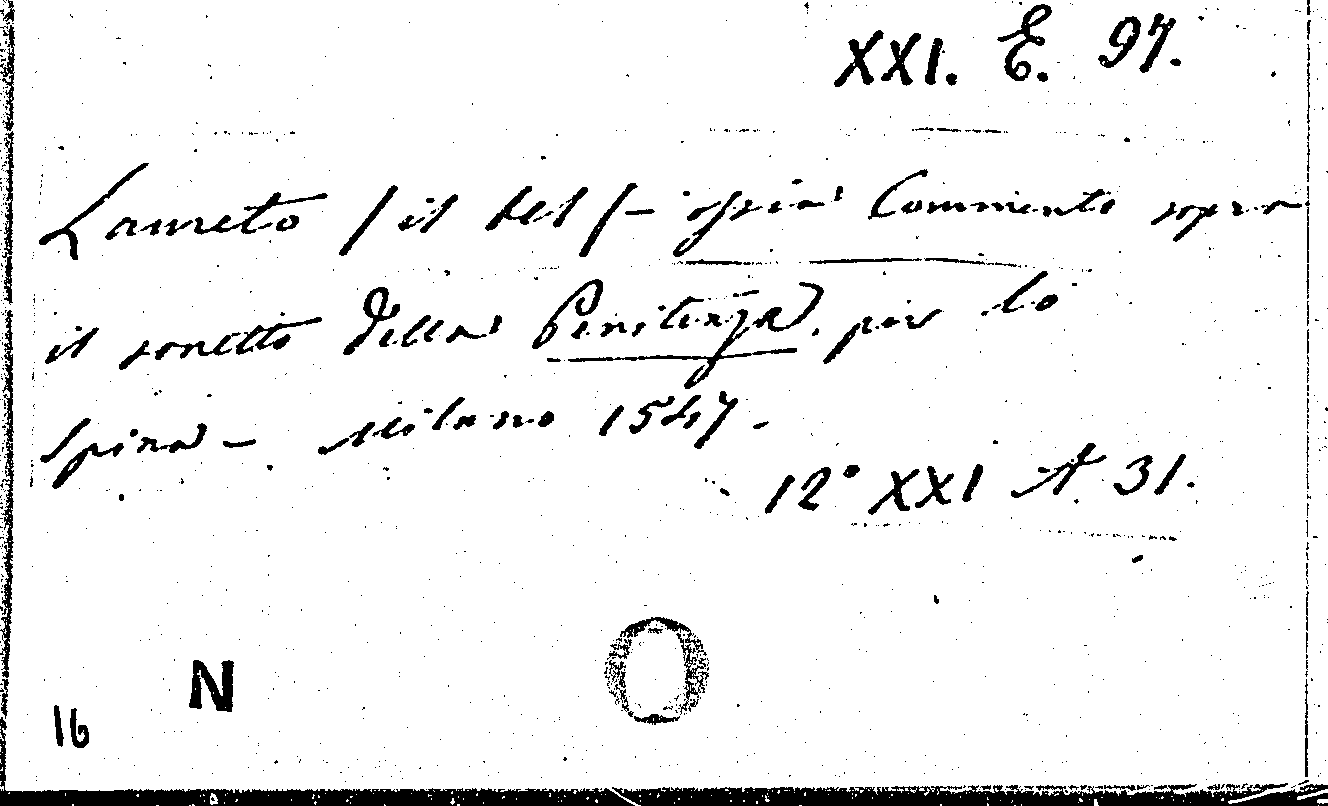 XXI. E. 97.
Laureto / il bel / - ossia Commento sopra
il sonetto della Penitenza, per lo
Spina - Milano 1547.
12° XXI A 31.
N
16